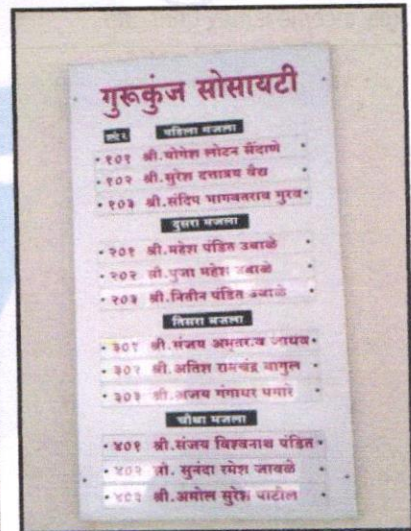 गुरूकुंज सोसायटी
पहिला मजला
१०१ श्री.योगेश लोटन सैंदाणे
१०२ श्री.सुरेश दत्तात्रय वैद्य
१०३ श्री.संदिप भागवतराव गुरव
दुसरा मजला
२०१ श्री.महेश पंडित उबाळे
२०२ सौ.पुजा महेश उबाळे
२०३ श्री.नितीन पंडित उबाळे
तिसरा मजला
३०१ श्री.संजय अमृतराव जाधव
३०२ श्री.अतिश रामचंद्र बागुल
३०३ श्री.अजय गंगाधर पगारे
चौथा मजला
४०१ श्री.संजय विश्वनाथ पंडित
४०२ सौ. सुनंदा रमेश जावळे
४०३ श्री.अमोल सुरेश पाटील